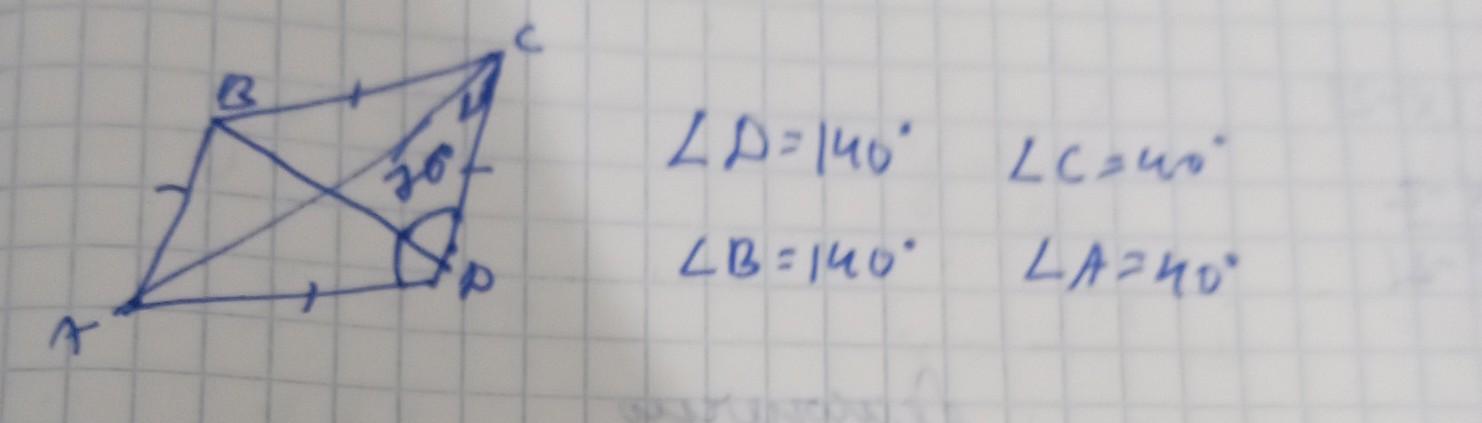 C
B
D
A
∠D=140° ∠C=40°
∠B=140° ∠A=40°